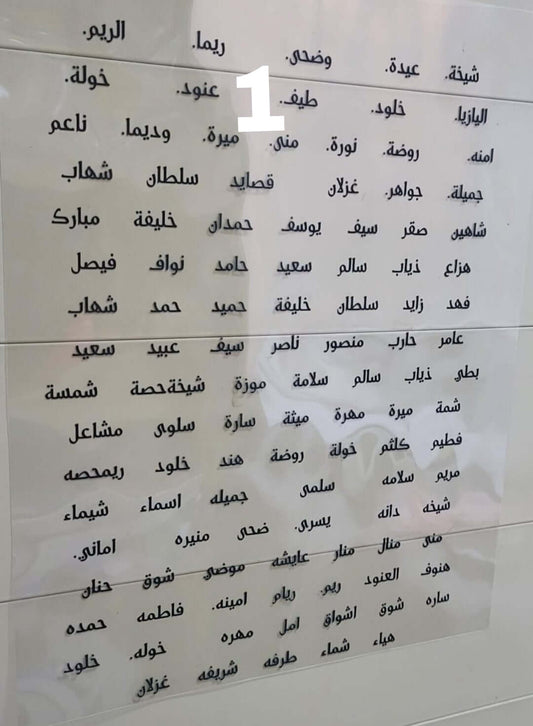 شيخة. عيدة. وضحى. ريما. الريم.
اليازيا. خلود. طيف. عنود. خولة.
1
امنه. روضة. نورة. منى. ميرة. وديما. ناعم
جميلة. جواهر. غزلان قصايد سلطان شهاب
شاهين صقر سيف يوسف حمدان خليفة مبارك
هزاع ذياب سالم سعيد حامد نواف فيصل
فهد زايد سلطان خليفة حميد حمد شهاب
عامر حارب منصور ناصر سيف عبيد سعيد
بطي ذياب سالم سلامة موزة شيخةحصة شمسة
شمة ميرة مهرة ميثة سارة سلوى مشاعل
فطيم كلثم خولة روضة هند خلود ريمحصه
مريم سلامه سلمى جميله اسماء شيماء
شيخه دانه يسرى. ضحى منيره اماني.
منى منال منار عايشه موضي شوق حنان
هنوف العنود ريم. ريام امينه. فاطمه حمده
ساره شوق اشواق امل مهره خوله. خلود
هياء شماء طرفه شريفه غزلان